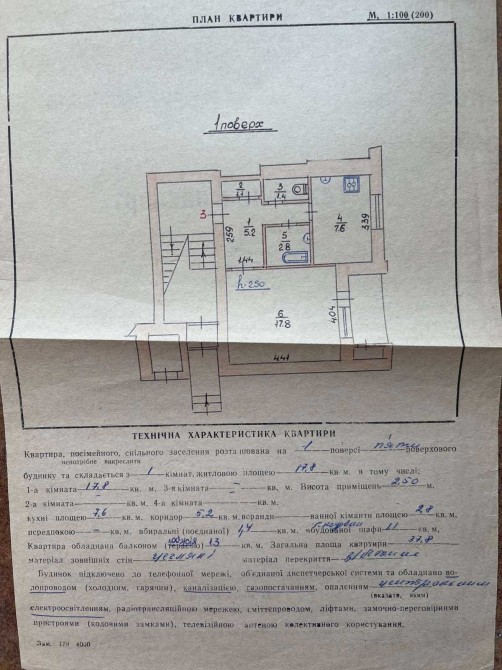 ПЛАН КВАРТИРИ
М. 1:100 (200)
1 поверх
2
1.1
3
1.4
3
1
5.2
2.59
4
7.6
3.39
5
2.8
1.44
h-2.50
6
17.8
4.04
4.41
ТЕХНІЧНА ХАРАКТЕРИСТИКА КВАРТИРИ
Квартира, посімейного, спільного заселення розташована на 1 поверсі п'яти поверхового
непотрібне викреслити
будинку та складається з 1 кімнат, житловою площею 17,8 кв. м. в тому числі:
1-а кімната 17,8 кв. м, 3-я кімната – кв. м. Висота приміщень 2,50 м.
2-а кімната – кв. м, 4-а кімната кв. м.
кухні площею 7,6 кв. м, коридор 5,2 кв. м, веранди ванної кімнати площею 2,8
кв. м, вбиральні (поєднаної) 1,4 кв. м, вбудованої шафи 1,1 кв. м,
Квартира обладнана балконом (терасою) лоджія 1,3 кв. м. Загальна площа квартири 37,8
матеріал зовнішніх стін цегляні матеріал перекриття
Будинок підключено до телефонної мережі, об'єднаної диспетчерської системи та обладнано во-
допроводом (холодним, гарячим), каналізацією, газопостачанням, опаленням центральним
(вказати, яким)
електроосвітленням, радіотрансляційною мережею, сміттєпроводом, ліфтами, замочно-переговірними
пристроями (кодовими замками), телевізійною антеною колективного користування.
Зам. 179 4000